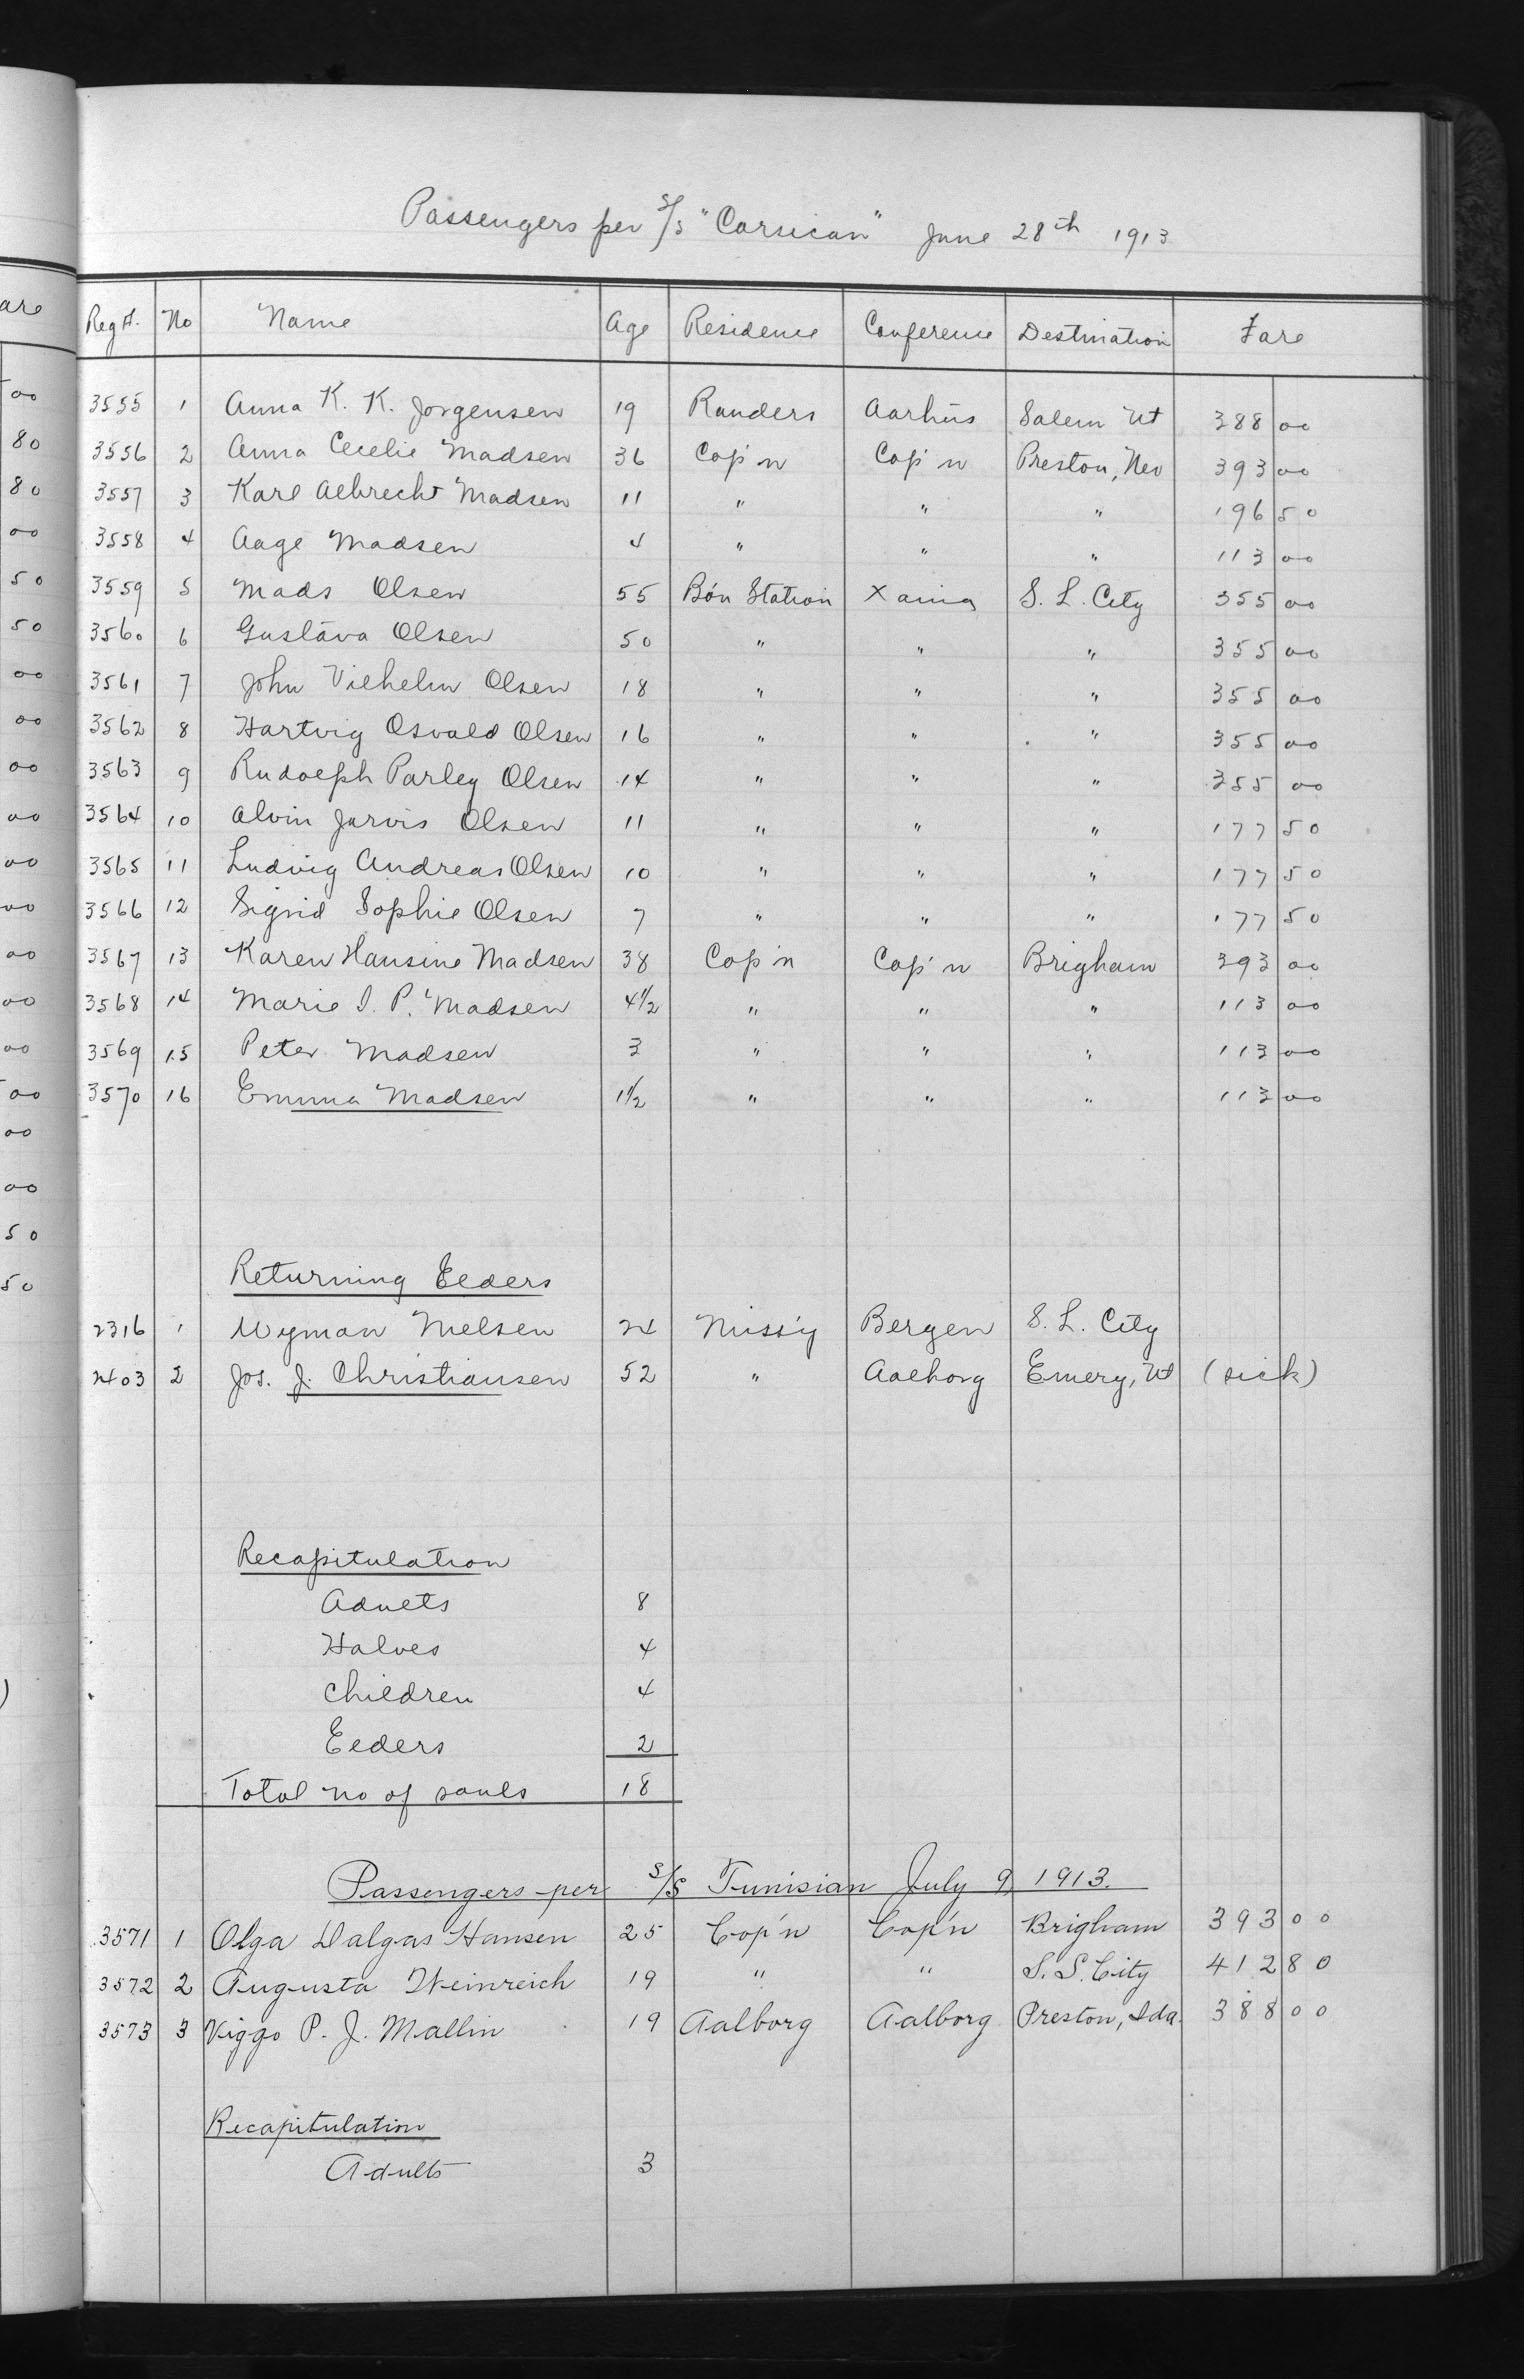 Passengers per S/S "Corsican" June 28th 1913
Reg #. No Name Age Residence Conference Destination Fare
3555 1 Anna K. K. Jorgensen 19 Randers Aarhus Salem Ut 388 00
3556 2 Anna Cecelie Madsen 36 Cop'n Cop'n Preston, Nev 393 00
3557 3 Karl Albrecht Madsen 11 " " " 196 50
3558 4 Aage Madsen 4 " " " 113 00
3559 5 Mads Olsen 55 Bón Station Xania S. L. City 355 00
3560 6 Gustava Olsen 50 " " " 355 00
3561 7 John Vilhelm Olsen 18 " " " 355 00
3562 8 Hartvig Osvald Olsen 16 " " " 355 00
3563 9 Rudolph Parley Olsen 14 " " " 355 00
3564 10 Alvin Jarvis Olsen 11 " " " 177 50
3565 11 Ludvig Andreas Olsen 10 " " " 177 50
3566 12 Sigrid Sophie Olsen 7 " " " 177 50
3567 13 Karen Hansine Madsen 38 Cop'n Cop'n Brigham 393 00
3568 14 Marie I. P. Madsen 4½ " " " 113 00
3569 15 Peter Madsen 3 " " " 113 00
3570 16 Emma Madsen 1½ " " " 113 00
Returning Elders
2316 1 Wyman Nielsen 24 Miss'y Bergen S. L. City
2403 2 Jos. J. Christiansen 52 " Aalborg Emery, Ut (sick)
Recapitulation
Adults 8
Halves 4
Children 4
Elders 2
Total no of souls 18
Passengers per S/S Tunisian July 9, 1913.
3571 1 Olga Dalgas Hansen 25 Cop'n Cop'n Brigham 393 00
3572 2 Augusta Weinreich 19 " " S. L. City 412 80
3573 3 Viggo P. J. Mallin 19 Aalborg Aalborg Preston, Ida. 388 00
Recapitulation
Adults 3
are
00
80
80
00
50
50
00
00
00
00
00
00
00
00
00
00
00
00
50
50